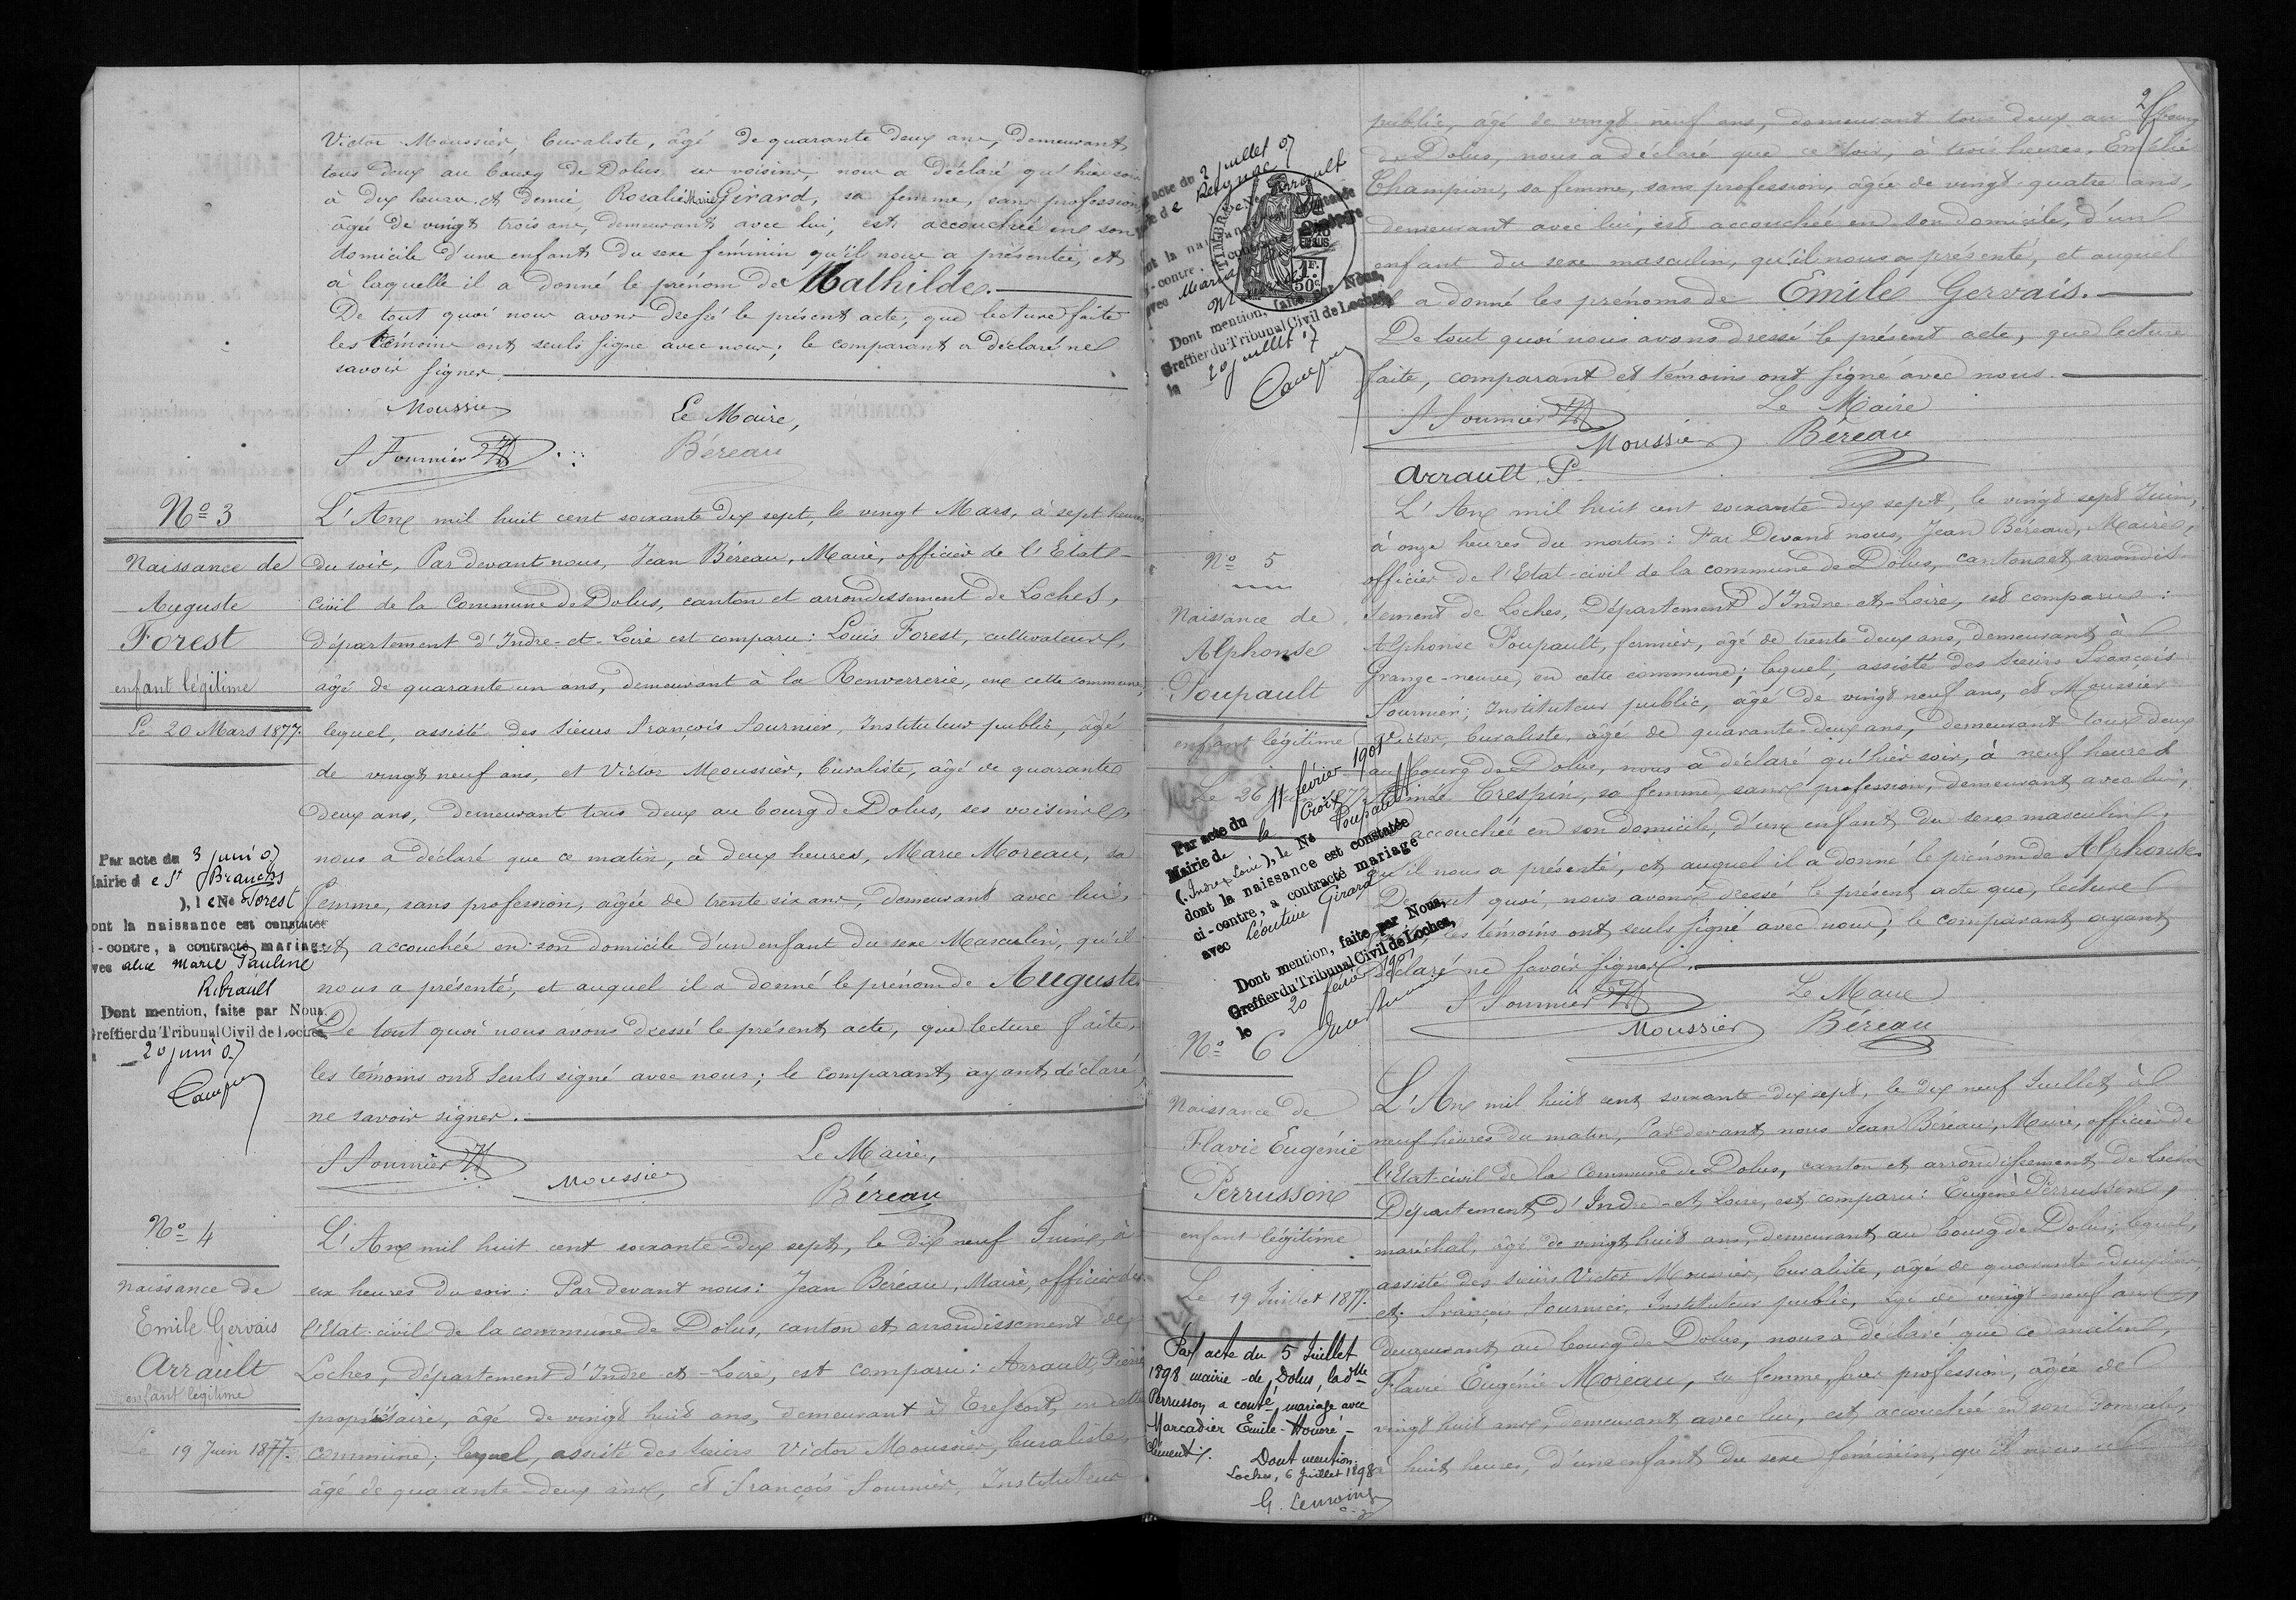 Victor Moussier, Buraliste, âgé de quarante deux ans, demeurant
tous deux au bourg de Dolus, ses voisins, nous a déclaré qu'hier soir
à dix heures et demie, Rosalie Marie Girard, sa femme, sans profession,
âgée de vingt trois ans, demeurant avec lui, est accouchée en son
domicile d'une enfant du sexe féminin qu'il nous a présentée, et
à laquelle il a donné le prénom de Mathilde.
De tout quoi nous avons dressé le présent acte, que lecture faite
les témoins ont seuls signé avec nous; le comparant a déclaré ne
savoir signer.
Moussier
Le Maire,
F Fournier
Béreau
No 3
Naissance de
Auguste
Forest
enfant légitime
Le 20 Mars 1877.
L'An mil huit cent soixante dix sept, le vingt Mars, à sept heures
du soir, Par devant nous, Jean Béreau, Maire, officier de l'Etat-
civil de la Commune de Dolus, canton et arrondissement de Loches,
département d'Indre-et-Loire est comparu: Louis Forest, cultivateur,
âgé de quarante un ans, demeurant à la Renverrerie, en cette commune,
lequel, assisté des sieurs François Fournier, Instituteur public, âgé
de vingt neuf ans, et Victor Moussier, Buraliste, âgé de quarante
deux ans, demeurant tous deux au bourg de Dolus, ses voisins,
nous a déclaré que ce matin, à deux heures, Marie Moreau, sa
femme, sans profession, âgée de trente six ans, demeurant avec lui,
est accouchée en son domicile d'un enfant du sexe Masculin, qu'il
nous a présenté, et auquel il a donné le prénom de Auguste
De tout quoi nous avons dressé le présent acte, que lecture faite,
les témoins ont seuls signé avec nous; le comparant ayant déclaré
ne savoir signer.
F Fournier
Moussier
Le Maire,
Béreau
Par acte du 3 juin 07
Mairie de St Branchs
), le No Forest
dont la naissance est constatée
ci-contre, a contracté mariage
avec Alice Marie Pauline
Ribrault
Dont mention, faite par Nous,
Greffier du Tribunal Civil de Loches,
20 juin 07
No 4
Naissance de
Emile Gervais
Arrault
enfant légitime
Le 19 Juin 1877.
L'An mil huit cent soixante-dix sept, le dix neuf Juin, à
six heures du soir: Par devant nous: Jean Béreau, Maire, officier de
l'Etat-civil de la commune de Dolus, canton et arrondissement de
Loches, département d'Indre-et-Loire, est comparu: Arrault, Pierre
propriétaire, âgé de vingt huit ans, demeurant à Epressort, en cette
commune; lequel, assisté des sieurs Victor Moussier, Buraliste,
âgé de quarante-deux ans, et François Fournier, Instituteur
2
public, âgé de vingt neuf ans, demeurant tous deux au bourg
de Dolus, nous a déclaré que ce soir, à trois heures, Emélie
Champion, sa femme, sans profession, âgée de vingt quatre ans,
demeurant avec lui, est accouchée en son domicile, d'un
enfant du sexe masculin, qu'il nous a présenté, et auquel
il a donné les prénoms de Emile Gervais.
De tout quoi nous avons dressé le présent acte, que lecture
faite, comparant et témoins ont signé avec nous.
F Fournier
Moussier
Le Maire
Béreau
Arrault P.
acte du 2 juillet 07
de Reignac
Arrault
TIMBRE
1F.
50c
dont la naissance est constatée
ci-contre, a contracté mariage
avec Maria
Dont mention, faite par Nous,
Greffier du Tribunal Civil de Loches,
le 20 juillet 07
No 5
Naissance de
Alphonse
Poupault
enfant légitime
Le 26 Juin 1877
L'An mil huit cent soixante dix sept, le vingt sept Juin,
à onze heures du matin: Par Devant nous, Jean Béreau, Maire,
officier de l'Etat-civil de la commune de Dolus, canton et arrondis-
sement de Loches, Département d'Indre-et-Loire, est comparu:
Alphonse Poupault, fermier, âgé de trente-deux ans, demeurant à
Grange-neuve, en cette commune; lequel, assisté des sieurs François
Fournier, Instituteur public, âgé de vingt neuf ans, et Moussier
Victor, Buraliste, âgé de quarante-deux ans, demeurant tous deux
au bourg de Dolus, nous a déclaré qu'hier soir, à neuf heures
Crespin, sa femme, sans profession, demeurant avec lui,
accouchée en son domicile, d'un enfant du sexe masculin,
qu'il nous a présenté, et auquel il a donné le prénom de Alphonse.
De tout quoi, nous avons dressé le présent acte que, lecture
les témoins ont seuls signé avec nous, le comparant ayant
déclaré ne savoir signer.
F Fournier
Moussier
Le Maire
Béreau
Par acte du 11 février 1901
Mairie de la Croix
(Indre et Loire), le No Poupault
dont la naissance est constatée
ci-contre, a contracté mariage
avec Léontine Girard
Dont mention, faite par Nous,
Greffier du Tribunal Civil de Loches,
le 20 février 1901
No 6
Naissance de
Flavie Eugénie
Perrusson
enfant légitime
Le 19 Juillet 1877.
L'An mil huit cent soixante-dix sept, le dix neuf Juillet à
neuf heures du matin, Par devant nous Jean Béreau, Maire, officier de
l'Etat-civil de la Commune de Dolus, canton et arrondissement de Loches
Département d'Indre-et-Loire, est comparu: Eugène Perrusson,
maréchal, âgé de vingt huit ans, demeurant au bourg de Dolus; lequel,
assisté des sieurs Victor Moussier, Buraliste, âgé de quarante-deux ans,
et François Fournier, Instituteur public, âgé de vingt-neuf ans,
demeurant au bourg de Dolus, nous a déclaré que ce matin,
Flavie Eugénie Moreau, sa femme, sans profession, âgée de
vingt huit ans, demeurant avec lui, est accouchée en son domicile,
à huit heures, d'une enfant du sexe féminin, qu'il nous a
Par acte du 5 Juillet
1898 mairie de Dolus, la dlle
Perrusson a conté mariage avec
Marcadier Émile-Honoré-
Clément.
Dont mention:
Loches, 6 Juillet 1898
G. Lemoine